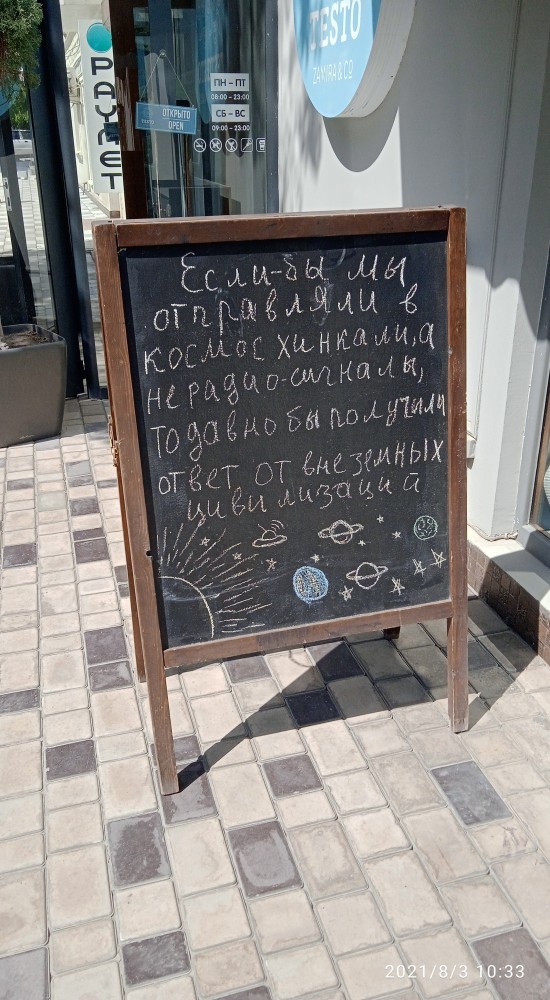 TESTO
ZAMIRA & CO
РАУЛЕТ
ПН – ПТ
08:00 – 23:00
СБ – ВС
09:00 – 23:00
ОТКРЫТО
OPEN
Если-бы мы
отправляли в
космос хинкали, а
не радио-сигналы,
то давно бы получили
ответ от внеземных
цивилизаций
2021/8/3 10:33